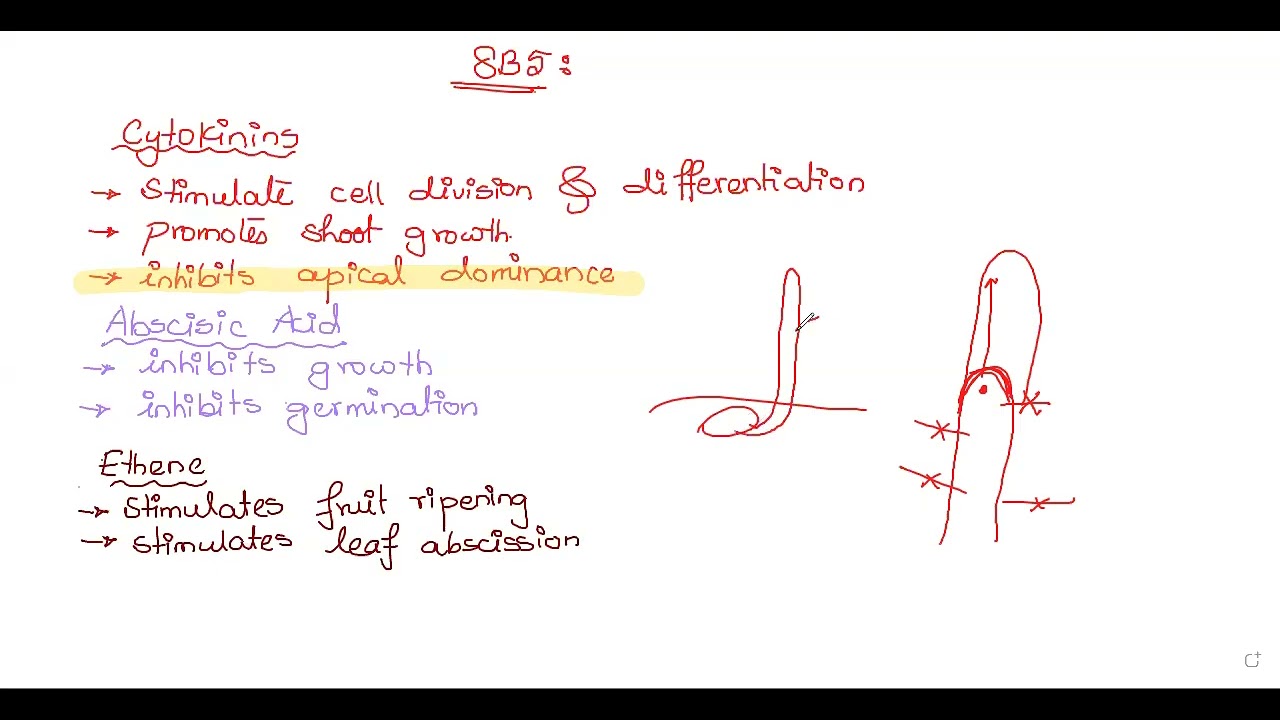 SBJ:
Cytokinins
→ Stimulate cell division & differentiation
→ promotes shoot growth.
→ inhibits apical dominance
Abscisic Acid
→ inhibits growth
→ inhibits germination
Ethene
→ Stimulates fruit ripening
→ stimulates leaf abscission